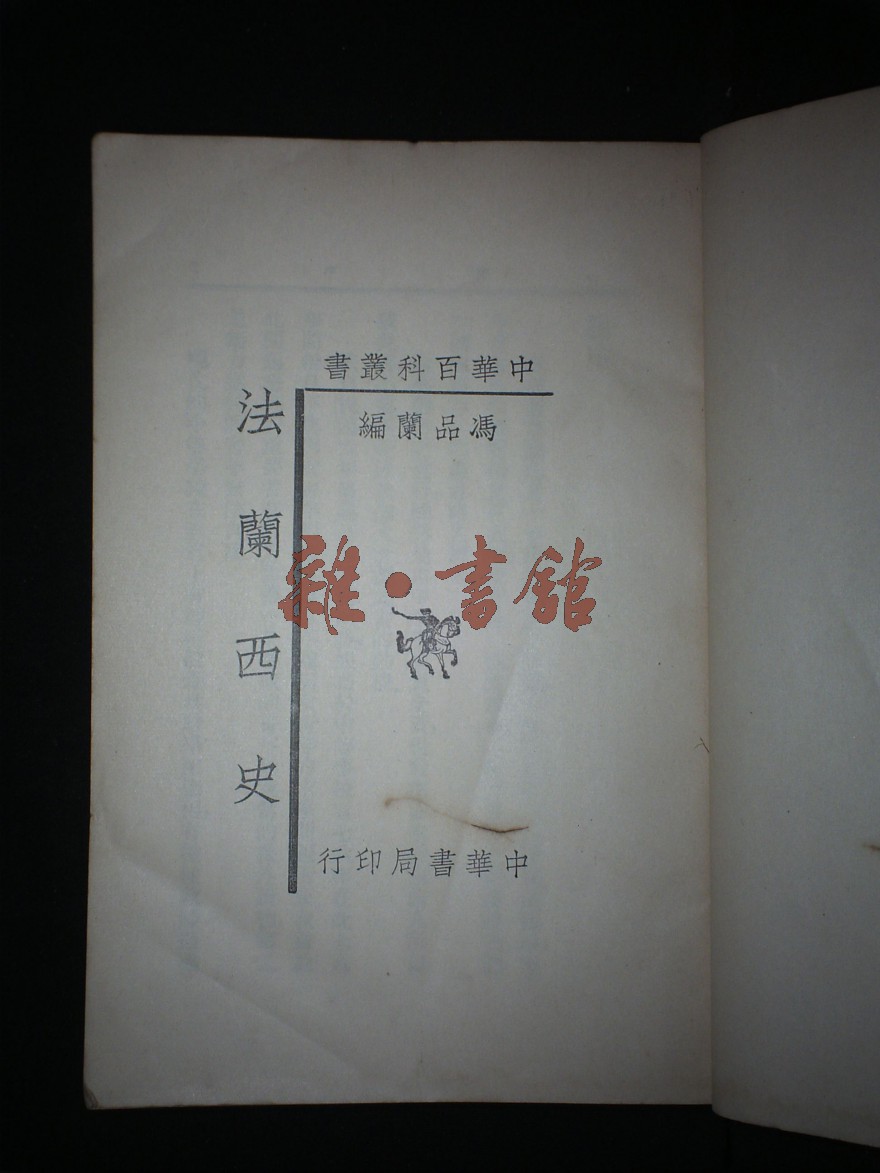 中華百科叢書
馮品蘭編
法蘭西史
雜·書館
中華書局印行